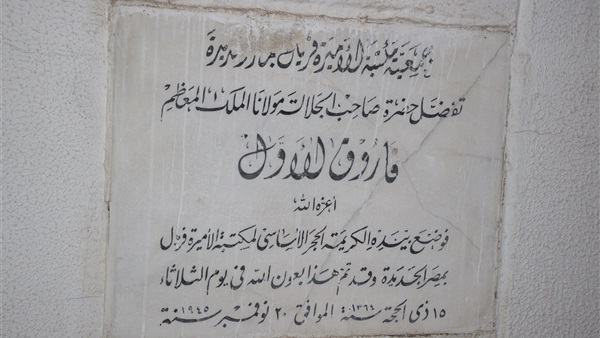 جمعية مكتبة الأميرة فريال بمصر الجديدة
تفضل حضرة صاحب الجلالة مولانا الملك المعظم
فاروق الأول
أعزه الله
فوضع بيده الكريمة الحجر الأساسي لمكتبة الأميرة فريال
بمصر الجديدة وقد تم هذا بعون الله في يوم الثلاثاء
١٥ ذي الحجة سنة ١٣٦٤ الموافق ٢٠ نوفمبر سنة ١٩٤٥